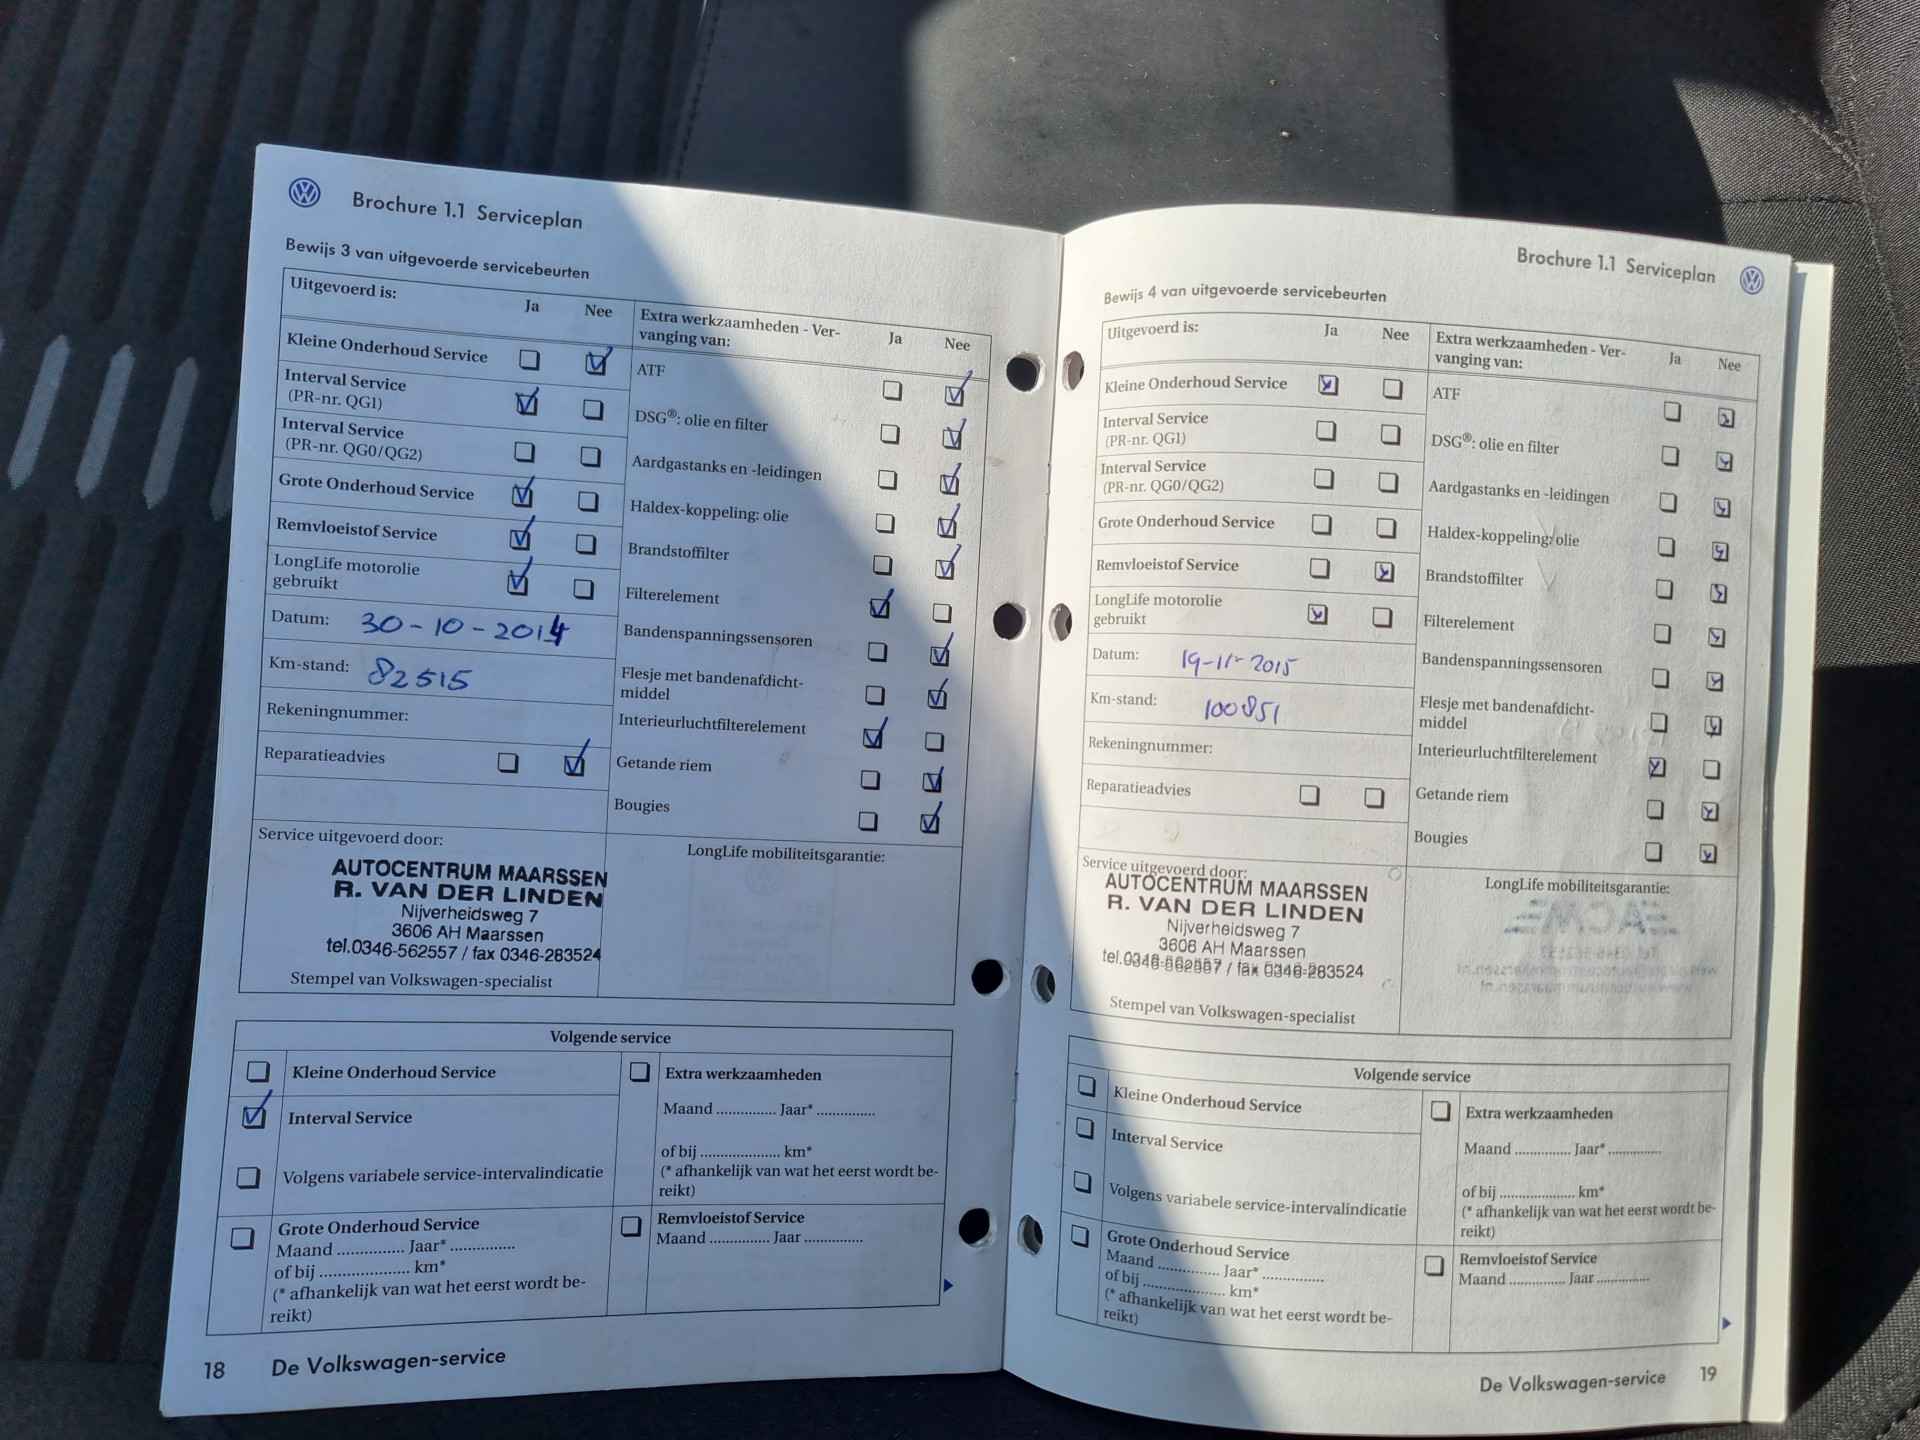 Brochure 1.1 Serviceplan
Bewijs 3 van uitgevoerde servicebeurten
Uitgevoerd is:
Ja
Nee
Kleine Onderhoud Service
Interval Service
(PR-nr. QG1)
Interval Service
(PR-nr. QG0/QG2)
Grote Onderhoud Service
Remvloeistof Service
LongLife motorolie
gebruikt
Datum: 30-10-2014
Km-stand: 82515
Rekeningnummer:
Reparatieadvies
Extra werkzaamheden - Ver-
vanging van:
Ja
Nee
ATF
DSG®: olie en filter
Aardgastanks en -leidingen
Haldex-koppeling: olie
Brandstoffilter
Filterelement
Bandenspanningssensoren
Flesje met bandenafdicht-
middel
Interieurluchtfilterelement
Getande riem
Bougies
Service uitgevoerd door:
AUTOCENTRUM MAARSSEN
R. VAN DER LINDEN
Nijverheidsweg 7
3606 AH Maarssen
tel.0346-562557 / fax 0346-283524
Stempel van Volkswagen-specialist
LongLife mobiliteitsgarantie:
Volgende service
Kleine Onderhoud Service
Interval Service
Volgens variabele service-intervalindicatie
Grote Onderhoud Service
Maand ............... Jaar* ..............
of bij .................... km*
(* afhankelijk van wat het eerst wordt be-
reikt)
Extra werkzaamheden
Maand ............... Jaar* ..............
of bij .................... km*
(* afhankelijk van wat het eerst wordt be-
reikt)
Remvloeistof Service
Maand ............... Jaar ..............
18 De Volkswagen-service
Brochure 1.1 Serviceplan
Bewijs 4 van uitgevoerde servicebeurten
Uitgevoerd is:
Ja
Nee
Kleine Onderhoud Service
Interval Service
(PR-nr. QG1)
Interval Service
(PR-nr. QG0/QG2)
Grote Onderhoud Service
Remvloeistof Service
LongLife motorolie
gebruikt
Datum: 19-11-2015
Km-stand: 100851
Rekeningnummer:
Reparatieadvies
Extra werkzaamheden - Ver-
vanging van:
Ja
Nee
ATF
DSG®: olie en filter
Aardgastanks en -leidingen
Haldex-koppeling: olie
Brandstoffilter
Filterelement
Bandenspanningssensoren
Flesje met bandenafdicht-
middel
Interieurluchtfilterelement
Getande riem
Bougies
Service uitgevoerd door:
AUTOCENTRUM MAARSSEN
R. VAN DER LINDEN
Nijverheidsweg 7
3606 AH Maarssen
tel.0346-562557 / fax 0346-283524
Stempel van Volkswagen-specialist
LongLife mobiliteitsgarantie:
Volgende service
Kleine Onderhoud Service
Interval Service
Volgens variabele service-intervalindicatie
Grote Onderhoud Service
Maand ............... Jaar* ..............
of bij .................... km*
(* afhankelijk van wat het eerst wordt be-
reikt)
Extra werkzaamheden
Maand ............... Jaar* ..............
of bij .................... km*
(* afhankelijk van wat het eerst wordt be-
reikt)
Remvloeistof Service
Maand ............... Jaar ..............
De Volkswagen-service 19